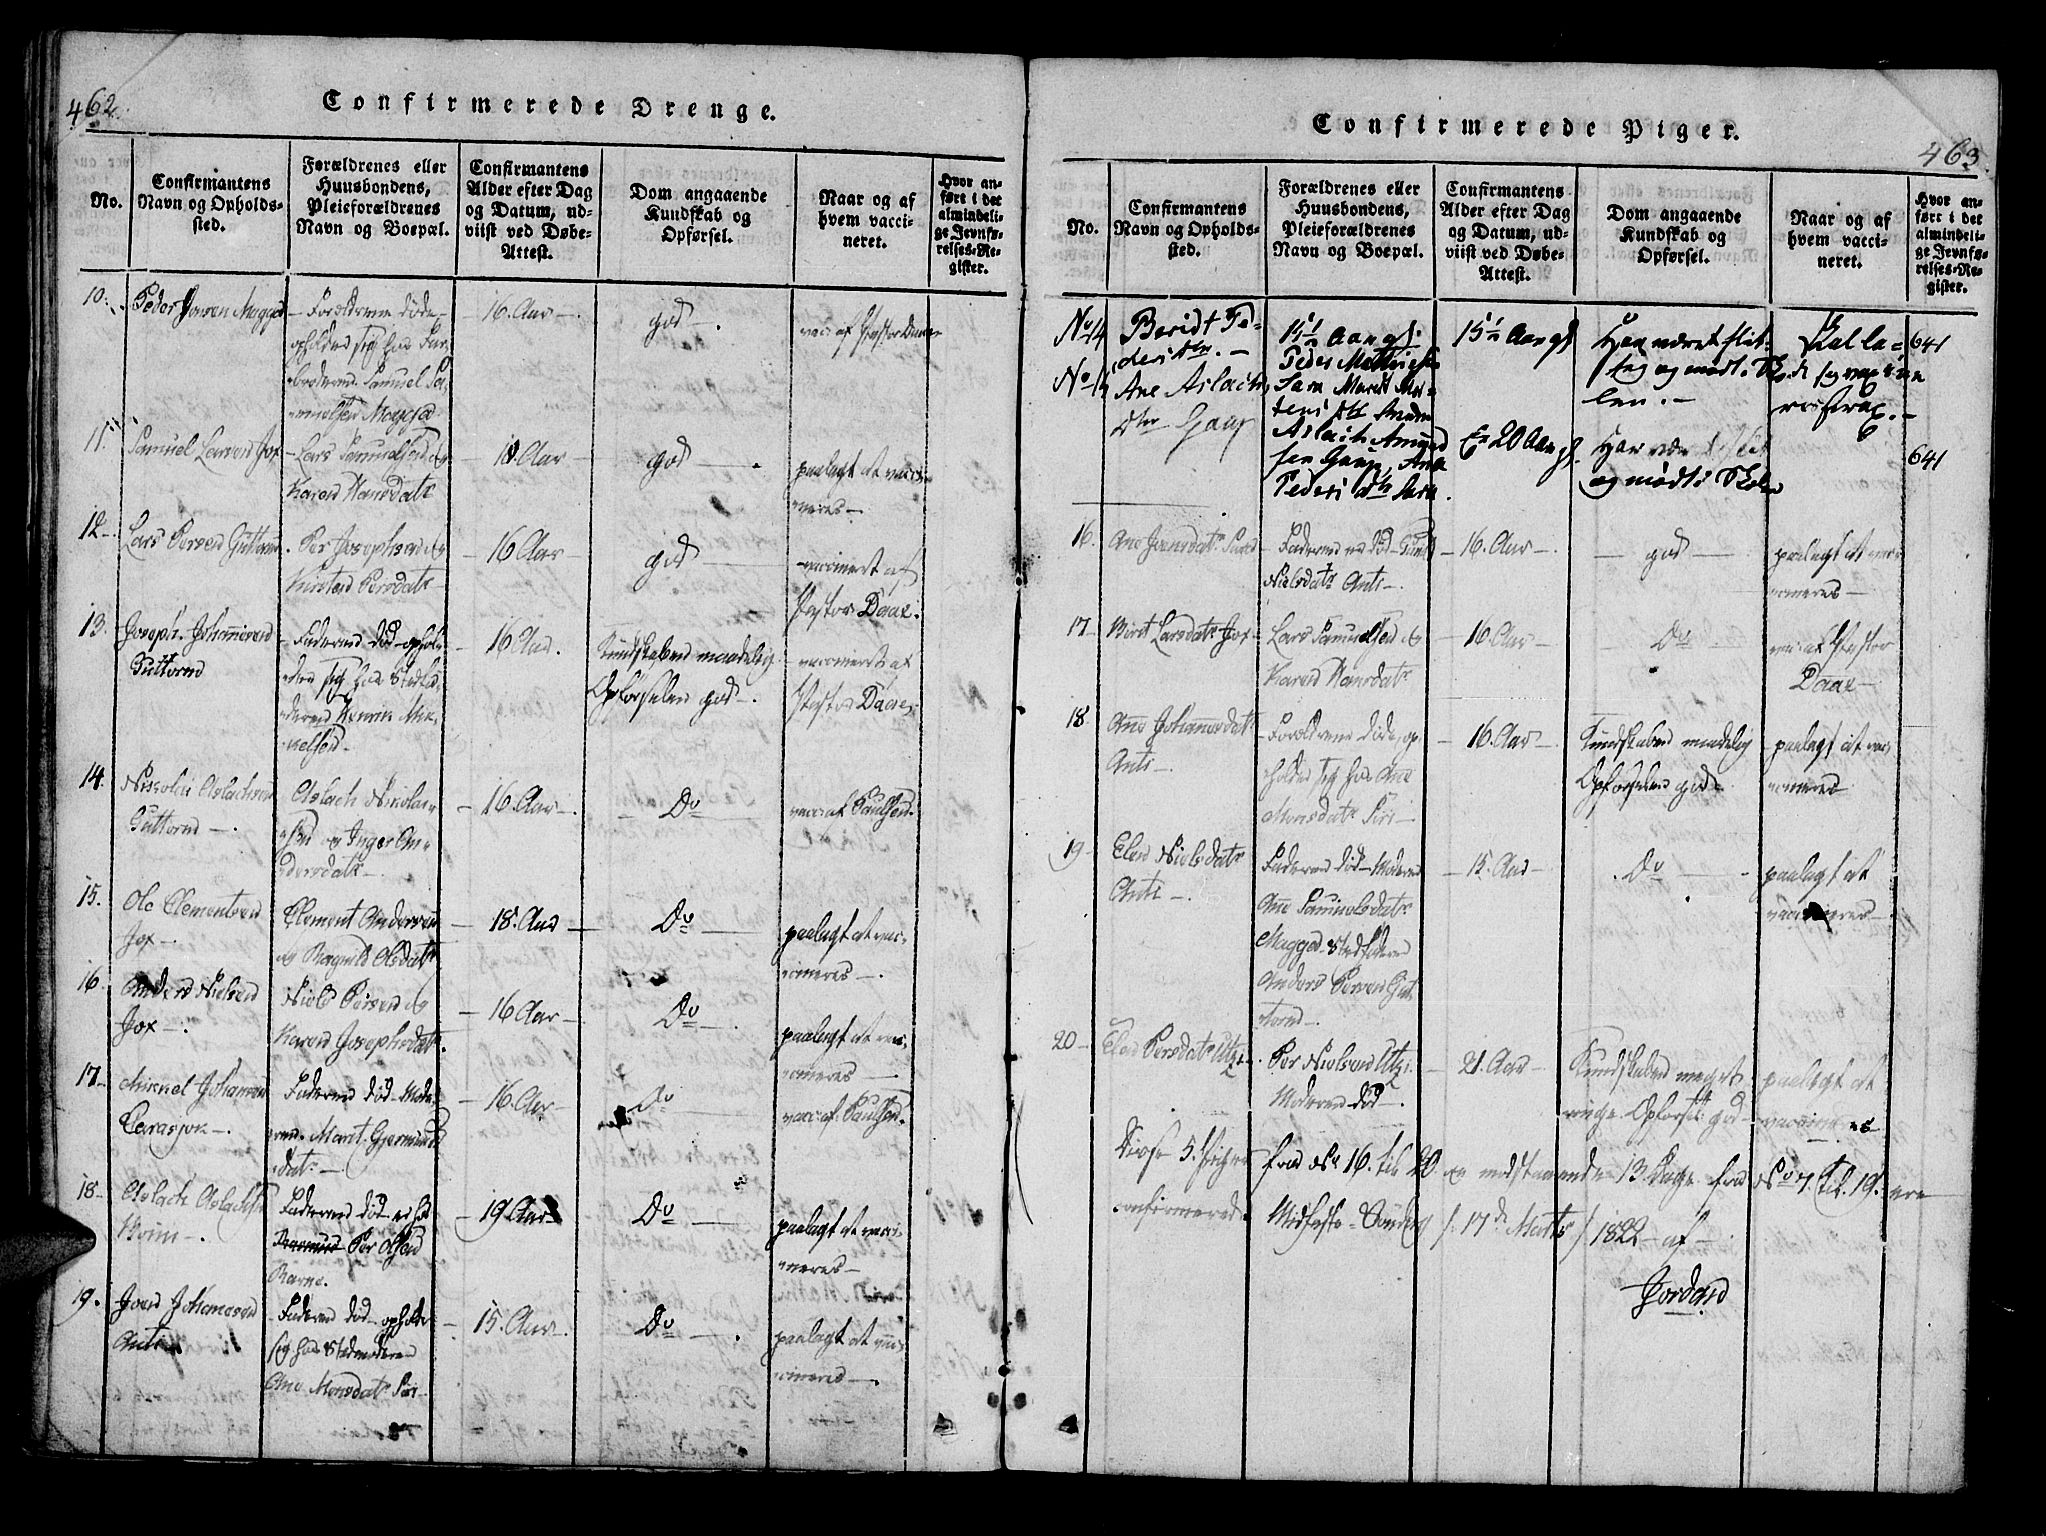 462.
Confirmerede Drenge.
No.
Confirmantens
Navn og Opholds-
sted.
Forældrenes eller
Huusbondens,
Pleieforældrenes
Navn og Boepæl.
Confirmantens
Alder efter Dag
og Datum, ud-
viist ved Døbe-
Attest.
Dom angaaende
Kundskab og
Opførsel.
Naar og af
hvem vacci-
neret.
Hvor an-
ført i det
almindeli-
ge Jevnfø-
relses-Re-
gister.
10.
Peder Jonsen Magga
Forældrene døde,
opholder sig hos Far-
broderen Samuel Sa-
muelsen Magga
16. Aar
god
vacc. af Pastor Daae
11.
Samuel Larsen Jox
Lars Samuelsen og
Karen Hansdatr
18. Aar
god
paalagt at vacci-
neres
12.
Lars Persen Guttorm
Per Josephsen og
Kirsten Persdatr
16 Aar
god
vaccineret af
Pastor Daae.
13.
Joseph Johannesen
Guttorm
Faderen død, ophol-
der sig hos Stedfa-
deren Henrik Mik-
kelsen
16 Aar.
Kundskaben maadelig
Opførselen god.
vaccineret af
Pastor Daae.
14.
Nikolai Aslachsen
Guttorm
Aslach Nikolai-
sen og Inger An-
dersdatr
16. Aar
Do
vacc. af Paulsen.
15.
Ole Clementsen
Jox
Clement Andersen
og Ragnild Olsdatr
18. Aar
Do
paalagt at vac-
cineres
16.
Anders Nielsen
Jox
Niels Persen og
Karen Josephsdatr.
16 Aar
Do
paalagt at vac-
cineres
17.
Mikkel Johannesen
Carasjok
Faderen død. Mode-
ren Marit Gjermunds-
datr
16. Aar
Do
vacc. af Paulsen.
18.
Aslach Aslachsen
Faderen død er hos
Per Olsen
19 Aar
Do
paalagt at vacci-
neres
19.
Joen Johannesen
Anti
Faderen død opholder
sig hos Stedmoderen
Ane Monsdatr Siri
15. Aar.
Do
paalagt at vac-
cineres
Confirmerede Piger.
463.
No.
Confirmantens
Navn og Opholds-
sted.
Forældrenes eller
Huusbondens,
Pleieforældrenes
Navn og Boepæl.
Confirmantens
Alder efter Dag
og Datum, ud-
viist ved Døbe-
Attest.
Dom angaaende
Kundskab og
Opførsel.
Naar og af
hvem vacci-
neret.
Hvor an-
ført i det
almindeli-
ge Jevnfø-
relses-Re-
gister.
No 14
Beridt Pe-
ders dtr.
15 1/2 Aar gl:
Peder Mathiesen
Sara Maret Mor-
tens dtr
15 1/2 Aar gl
Har været flit-
tig og mødt i Sko-
len.
641
No 15
Ane Aslachs
dtr Gaup
Aslach Amund
sen Gaup, Ane
Peders dtr Sara.
Er 20 Aar gl.
Har været flit
og mødt i Skolen
641
16.
Ane Joensdatr
Faderen er død
Nielsdatr Anti
16. Aar
god
paalagt at vac-
cineres
17
Birit Larsdatr Jox
Lars Samuelsen og
Karen Hansdatr
16. Aar
Do
vacc. af Pastor
Daae
18.
Ane Johannesdatr
Anti
Forældrene døde, op-
holder sig hos Ane
Monsdatr Siri
16. Aar
Kundskaben maadelig
Opførselen god
paalagt at vac-
cineres
19
Elen Nielsdatr
Anti
Faderen død. Moderen
Ane Samuelsdatr
Magga. Stedfaderen
Anders Persen Gut-
torm
15. Aar
Do
paalagt at
vaccineres
20
Elen Persdatr Utzi
Per Nielsen Utzi
Moderen død
21. Aar
Kundskaben meget
ringe. Opførsel: god
paalagt at
vaccineres
Disse 5. Piger fra No 16. til 20 og modstaaende 13. Drenge fra No 7. til 19. ere
confirmerede Midfaste-Søndag /: 17de Marts :/ 1822 af
Jordan